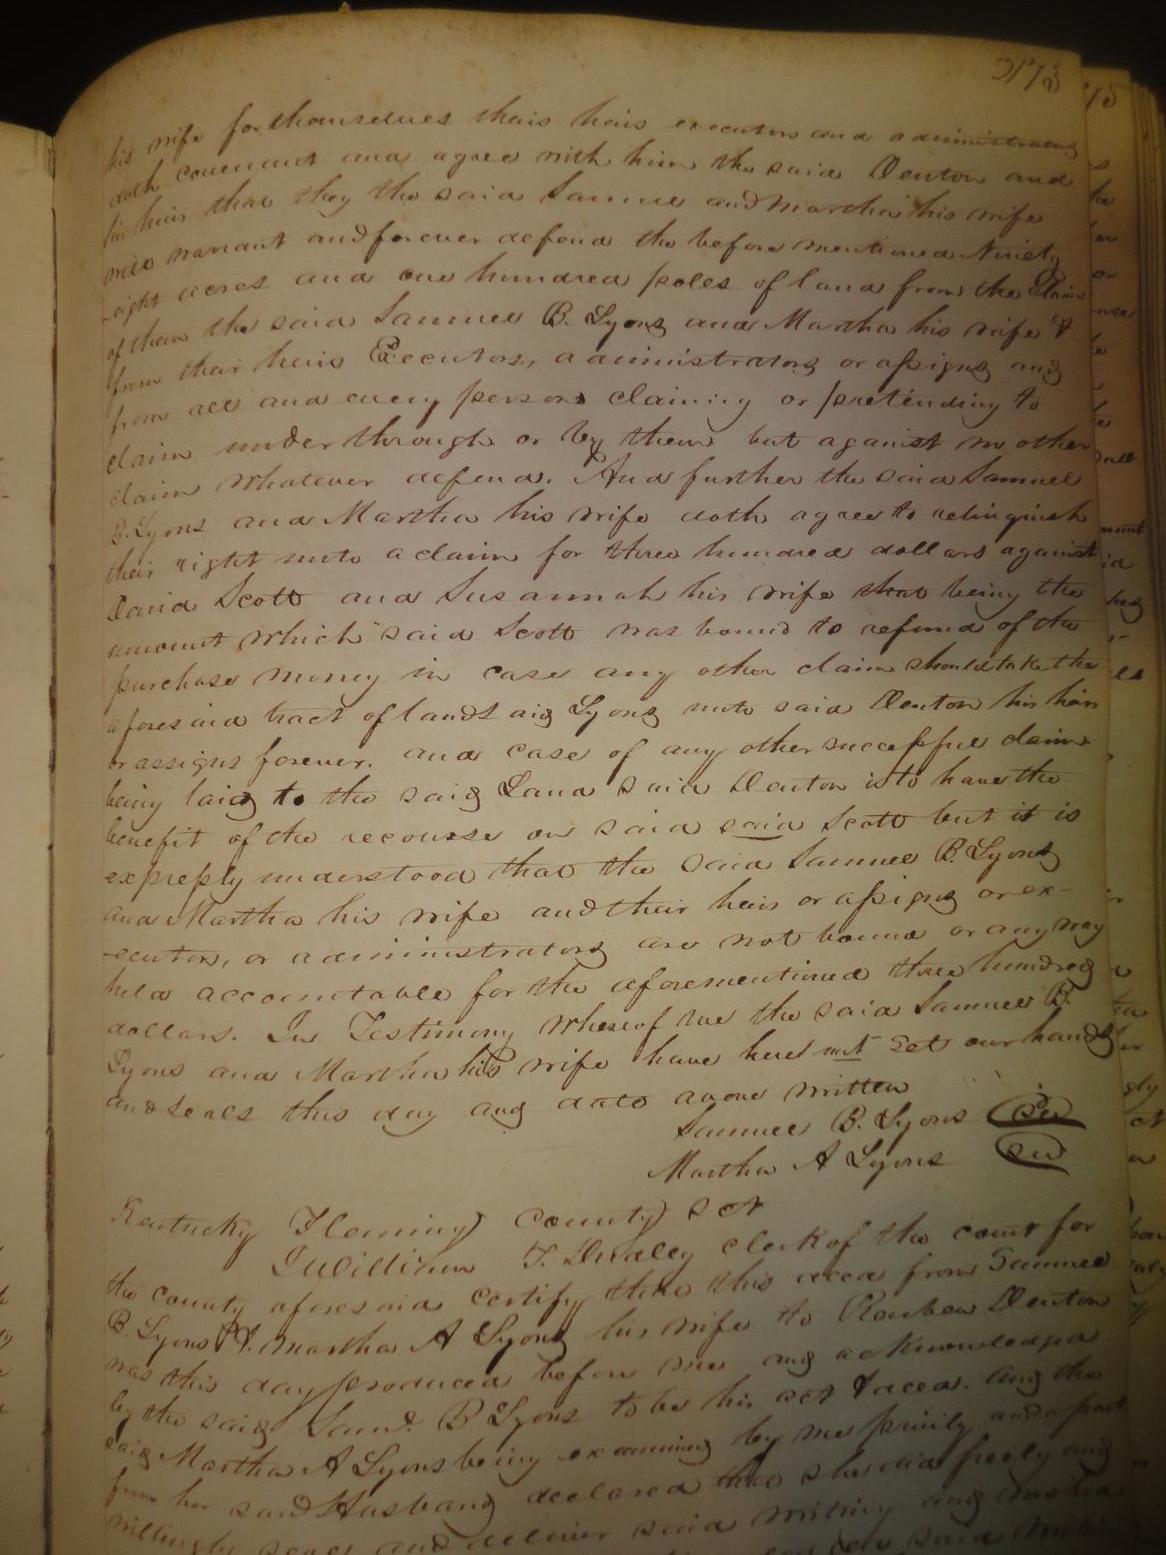 his wife for themselves theis heis executors and administrators
doth covenant and agree with him the said Denton and
his heirs that they the said Samuel and Martha his wife
will warrant and forever defend the before mentioned Ninety
eight acres and one hundred poles of land from the Claim
of them the said Samuel B. Lyons and Martha his wife &
from their heirs Executors, administrators or assigns and
from all and every person claiming or pretending to
claim under through or by them but against no other
claim whatever defend. And further the said Samuel
B. Lyons and Martha his wife doth agree to relinquish
their right unto a claim for three hundred dollars against
David Scott and Susannah his wife that being the
amount which said Scott was bound to refund of the
purchase money in case any other claim should take the
aforesaid tract of land said Lyons unto said Denton his heirs
or assigns forever. and case of any other successful claim
being laid to the said Land said Denton is to have the
benefit of the recourse on said said Scott but it is
expressly understood that the said Samuel B. Lyons
and Martha his wife and their heirs or assigns or ex-
-ecutors, or administrators are not bound or any way
held accountable for the aforementioned three hundred
dollars. In Testimony Whereof we the said Samuel B.
Lyons and Martha his wife have here unt set our hands
and seals this day and date above written
Samuel B. Lyons
Martha A Lyons
Kentucky Fleming County Sct
I William T. Dudley clerk of the court for
the county aforesaid certify that this deed from Samuel
B. Lyons & Martha A Lyons his wife to Reuben Denton
was this day produced before me and acknowledged
by the said Saml. B Lyons to be his act & deed. and the
said Martha A Lyons being examined by me privily and apart
from her said Husband declared that she did freely and
willingly seal and deliver said writing and wished
said writing